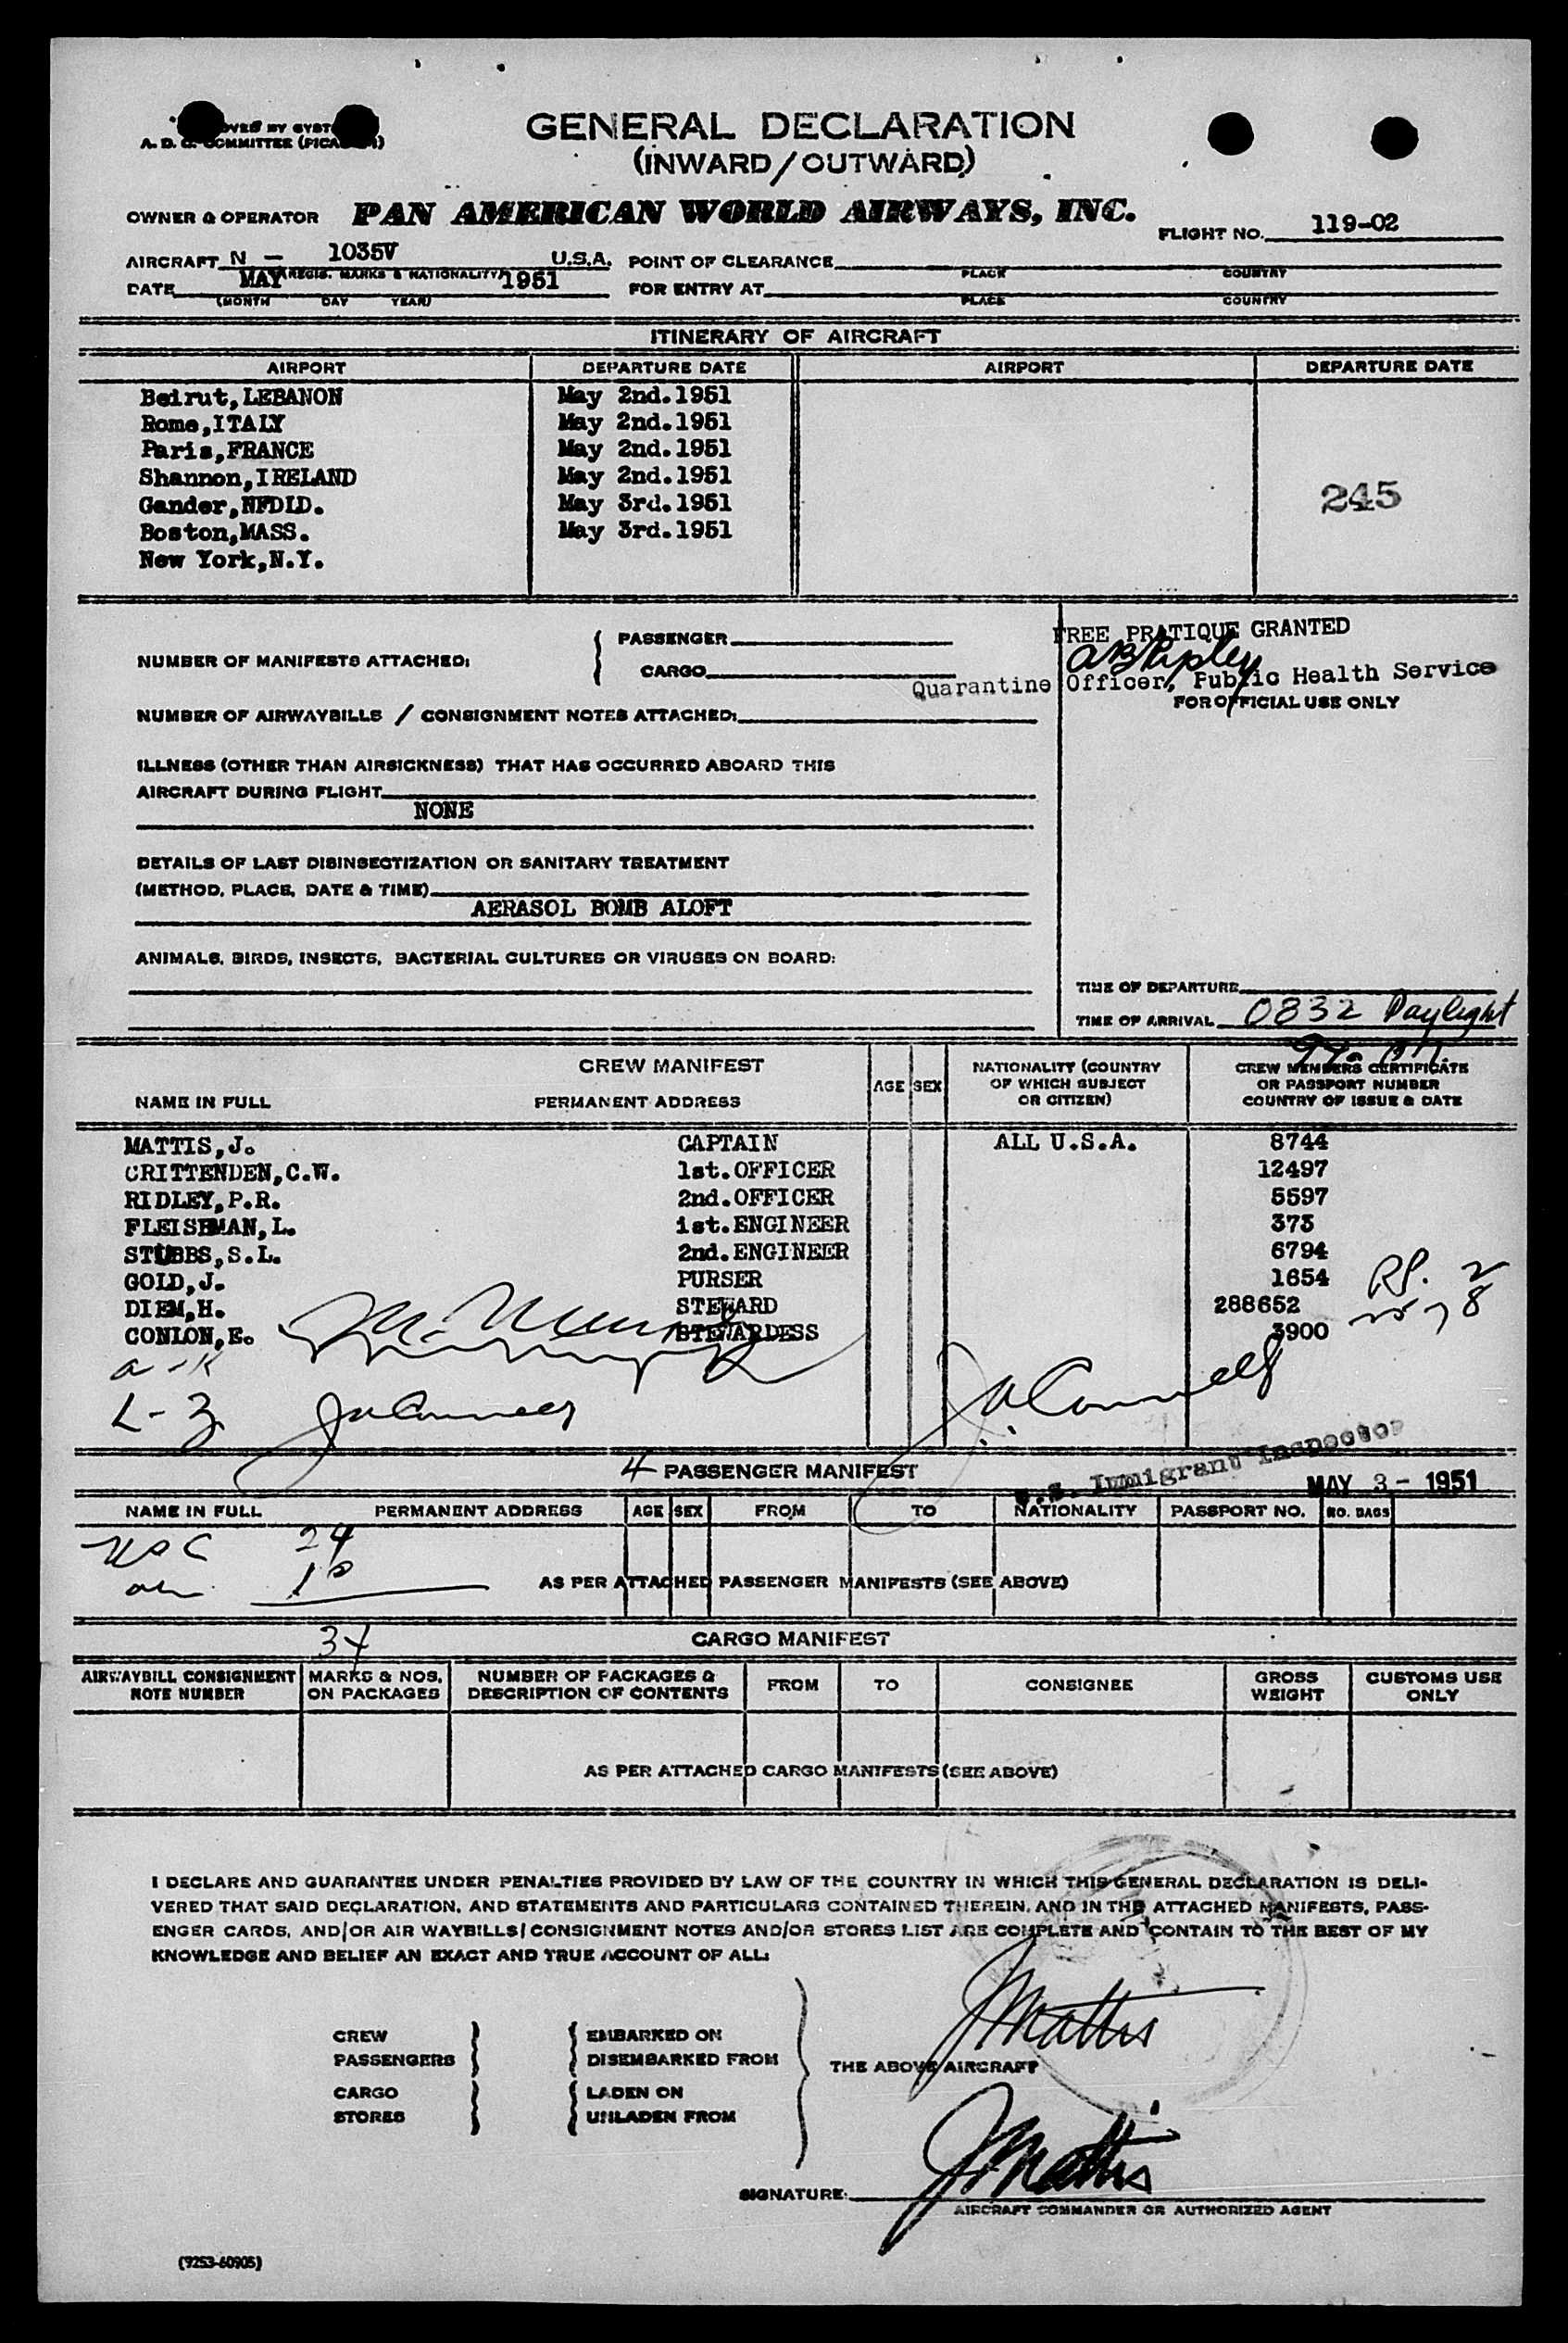 GENERAL DECLARATION
(INWARD/OUTWARD)
A. D. C. COMMITTEE
OWNER & OPERATOR PAN AMERICAN WORLD AIRWAYS, INC.
FLIGHT NO. 119-02
AIRCRAFT N - 1035V U.S.A. POINT OF CLEARANCE
(REGIS. MARKS & NATIONALITY) PLACE COUNTRY
DATE MAY 1951 FOR ENTRY AT
(MONTH DAY YEAR) PLACE COUNTRY
ITINERARY OF AIRCRAFT
AIRPORT DEPARTURE DATE AIRPORT DEPARTURE DATE
Beirut,LEBANON May 2nd.1951
Rome,ITALY May 2nd.1951
Paris,FRANCE May 2nd.1951
Shannon,IRELAND May 2nd.1951
Gander,NFDLD. May 3rd.1951
245
Boston,MASS. May 3rd.1951
New York,N.Y.
NUMBER OF MANIFESTS ATTACHED:
PASSENGER
CARGO
FREE PRATIQUE GRANTED
Quarantine Officer, Public Health Service
FOR OFFICIAL USE ONLY
NUMBER OF AIRWAYBILLS / CONSIGNMENT NOTES ATTACHED:
ILLNESS (OTHER THAN AIRSICKNESS) THAT HAS OCCURRED ABOARD THIS
AIRCRAFT DURING FLIGHT
NONE
DETAILS OF LAST DISINSECTIZATION OR SANITARY TREATMENT
(METHOD, PLACE, DATE & TIME)
AERASOL BOMB ALOFT
ANIMALS, BIRDS, INSECTS, BACTERIAL CULTURES OR VIRUSES ON BOARD:
TIME OF DEPARTURE
TIME OF ARRIVAL 0832 Daylight
CREW MANIFEST
NAME IN FULL PERMANENT ADDRESS AGE SEX
NATIONALITY (COUNTRY
OF WHICH SUBJECT
OR CITIZEN)
CREW MEMBERS CERTIFICATE
OR PASSPORT NUMBER
COUNTRY OF ISSUE & DATE
MATTIS,J. CAPTAIN ALL U.S.A. 8744
CRITTENDEN,C.W. 1st.OFFICER 12497
RIDLEY,P.R. 2nd.OFFICER 5597
FLEISHMAN,L. 1st.ENGINEER 373
STUBBS,S.L. 2nd.ENGINEER 6794
GOLD,J. PURSER 1654
DIEM,H. STEWARD 288652
CONLON,E. STEWARDESS 3900
a-K
L-Z
4 PASSENGER MANIFEST
U.S. Immigrant Inspector
MAY 3 - 1951
NAME IN FULL PERMANENT ADDRESS AGE SEX FROM TO NATIONALITY PASSPORT NO. NO. BAGS
USC 24
10
AS PER ATTACHED PASSENGER MANIFESTS (SEE ABOVE)
34
CARGO MANIFEST
AIRWAYBILL CONSIGNMENT
NOTE NUMBER
MARKS & NOS.
ON PACKAGES
NUMBER OF PACKAGES &
DESCRIPTION OF CONTENTS
FROM TO CONSIGNEE
GROSS
WEIGHT
CUSTOMS USE
ONLY
AS PER ATTACHED CARGO MANIFESTS (SEE ABOVE)
I DECLARE AND GUARANTEE UNDER PENALTIES PROVIDED BY LAW OF THE COUNTRY IN WHICH THIS GENERAL DECLARATION IS DELI-
VERED THAT SAID DECLARATION, AND STATEMENTS AND PARTICULARS CONTAINED THEREIN, AND IN THE ATTACHED MANIFESTS, PASS-
ENGER CARDS, AND/OR AIR WAYBILLS/CONSIGNMENT NOTES AND/OR STORES LIST ARE COMPLETE AND CONTAIN TO THE BEST OF MY
KNOWLEDGE AND BELIEF AN EXACT AND TRUE ACCOUNT OF ALL:
CREW EMBARKED ON
PASSENGERS DISEMBARKED FROM
JMattis
THE ABOVE AIRCRAFT
CARGO LADEN ON
STORES UNLADEN FROM
SIGNATURE: JMattis
AIRCRAFT COMMANDER OR AUTHORIZED AGENT
(9253-60905)